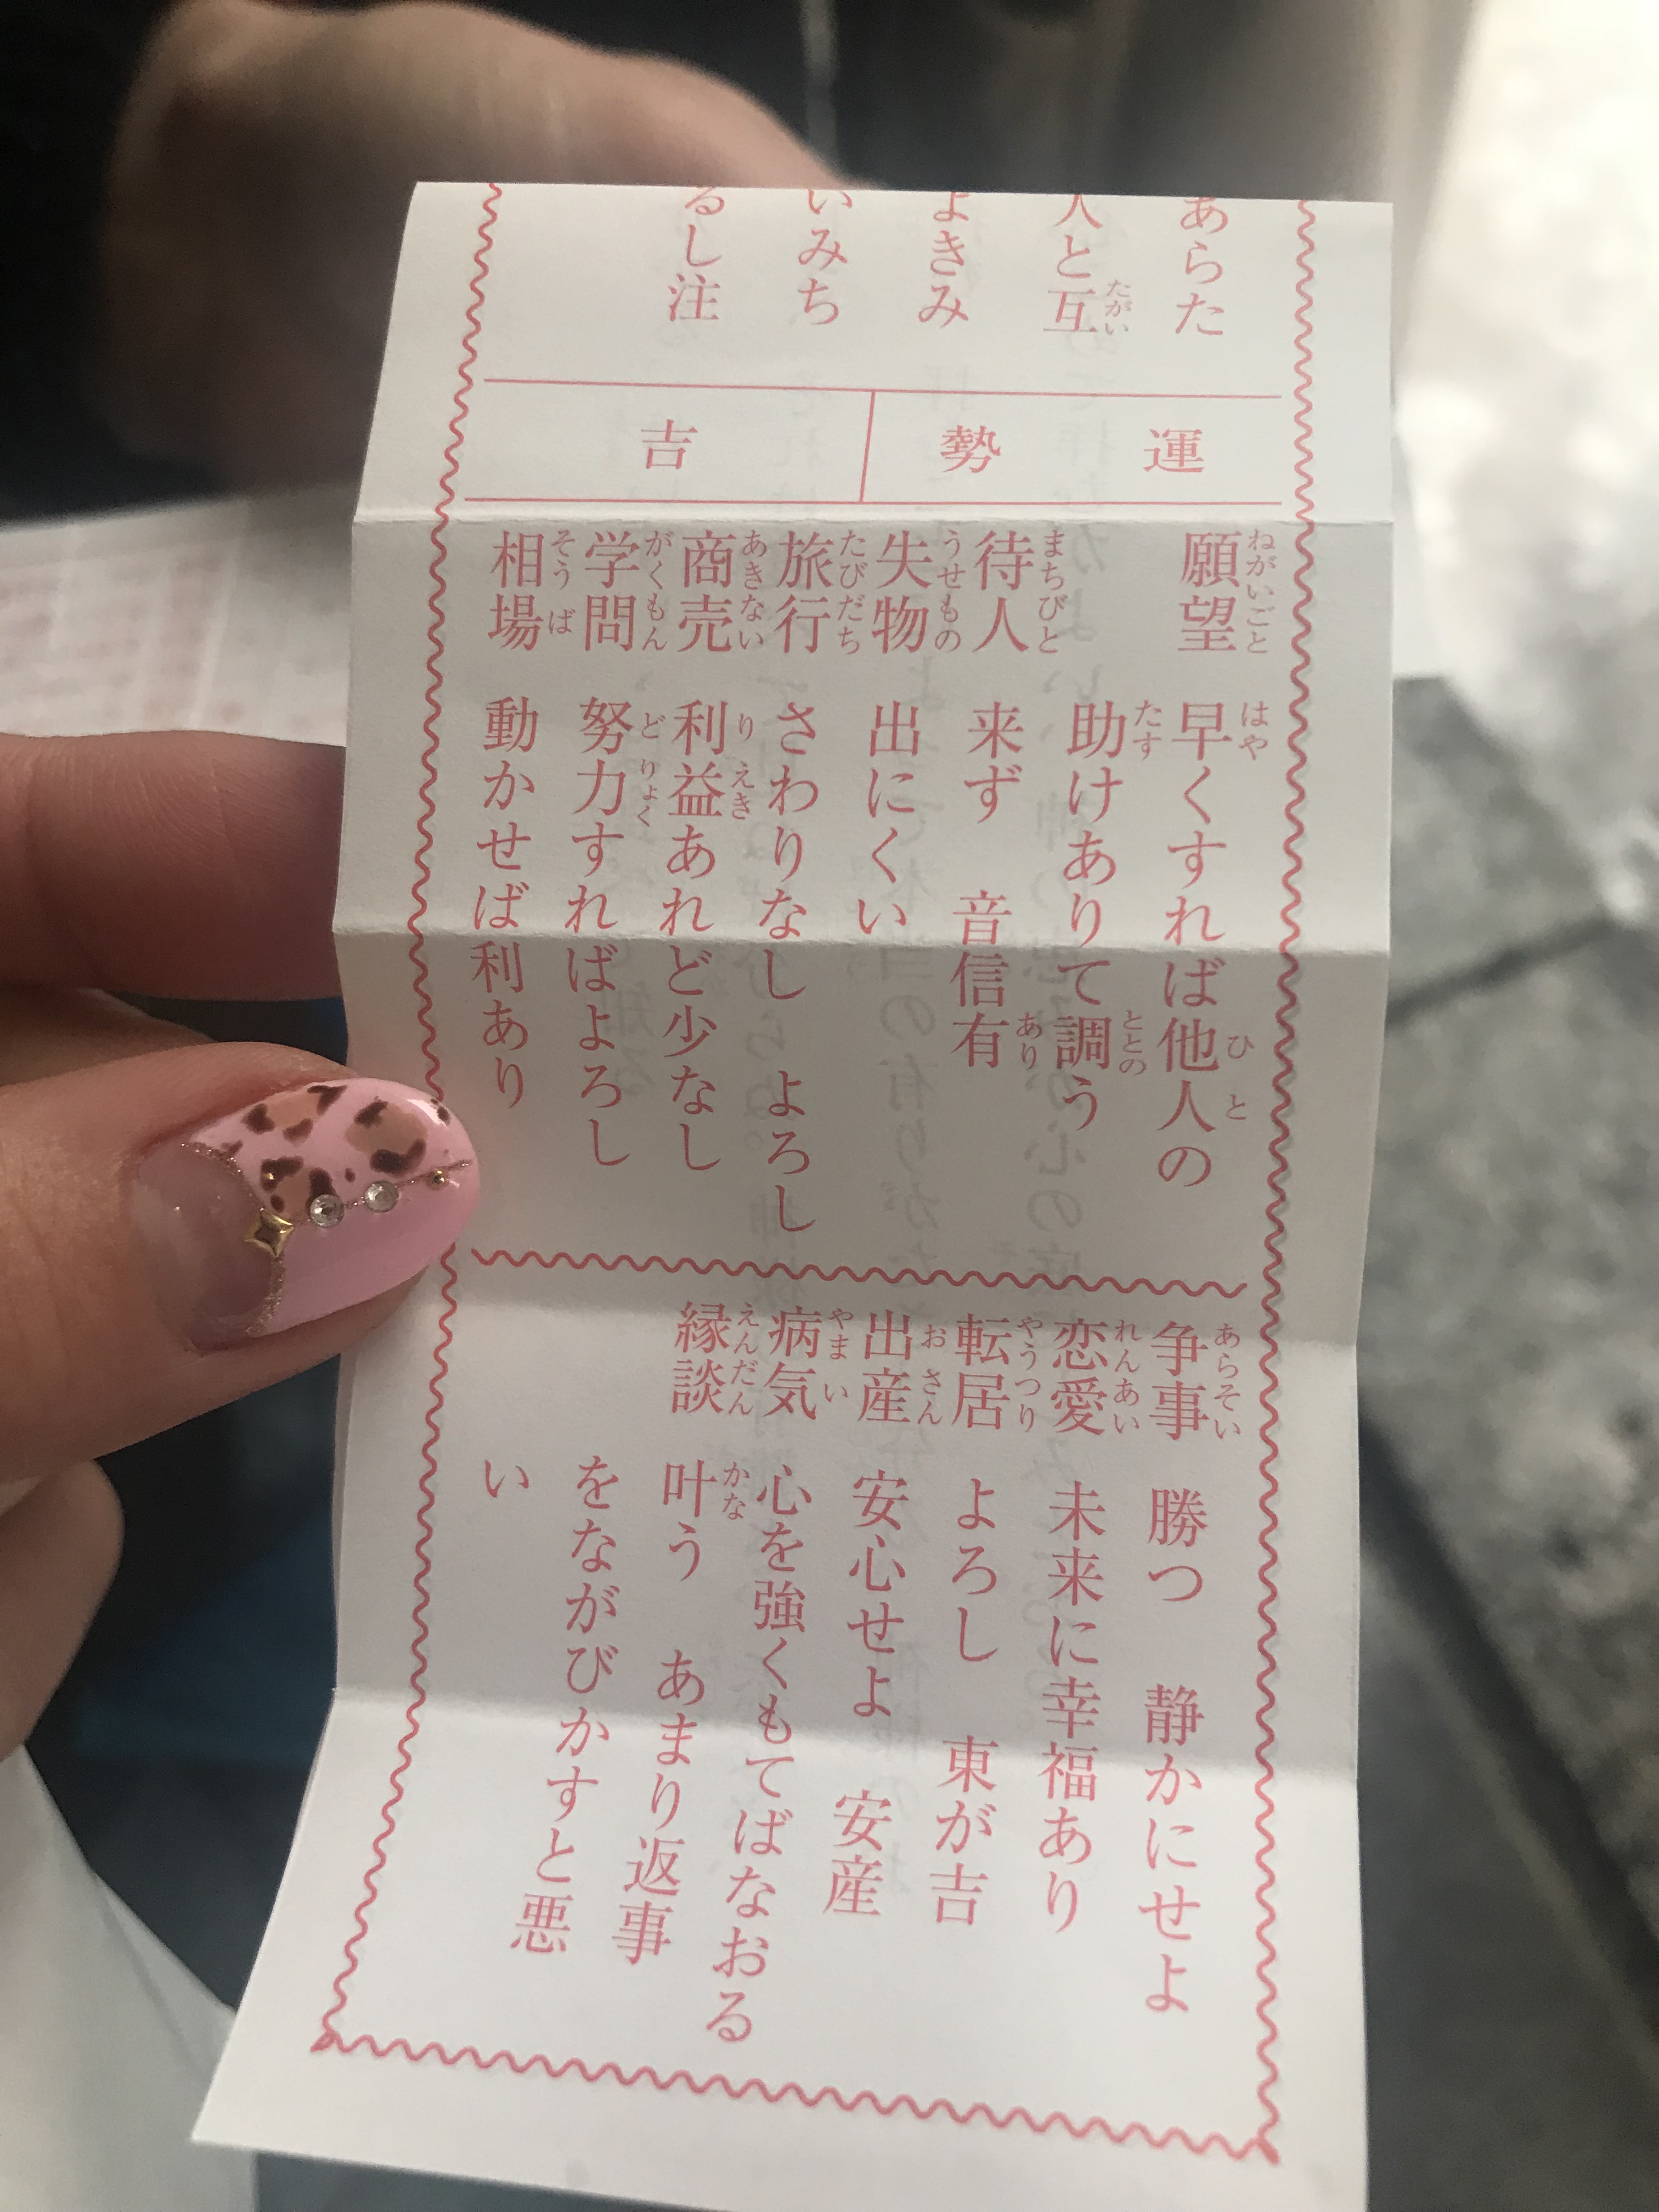 あらた
人と互
よきみ
いみち
るし注
運勢
吉
願望 早くすれば他人の
助けありて調う
待人 来ず 音信有
失物 出にくい
旅行 さわりなし よろし
商売 利益あれど少なし
学問 努力すればよろし
相場 動かせば利あり
争事 勝つ 静かにせよ
恋愛 未来に幸福あり
転居 よろし 東が吉
出産 安心せよ 安産
病気 心を強くもてばなおる
縁談 叶う あまり返事
をながびかすと悪
い